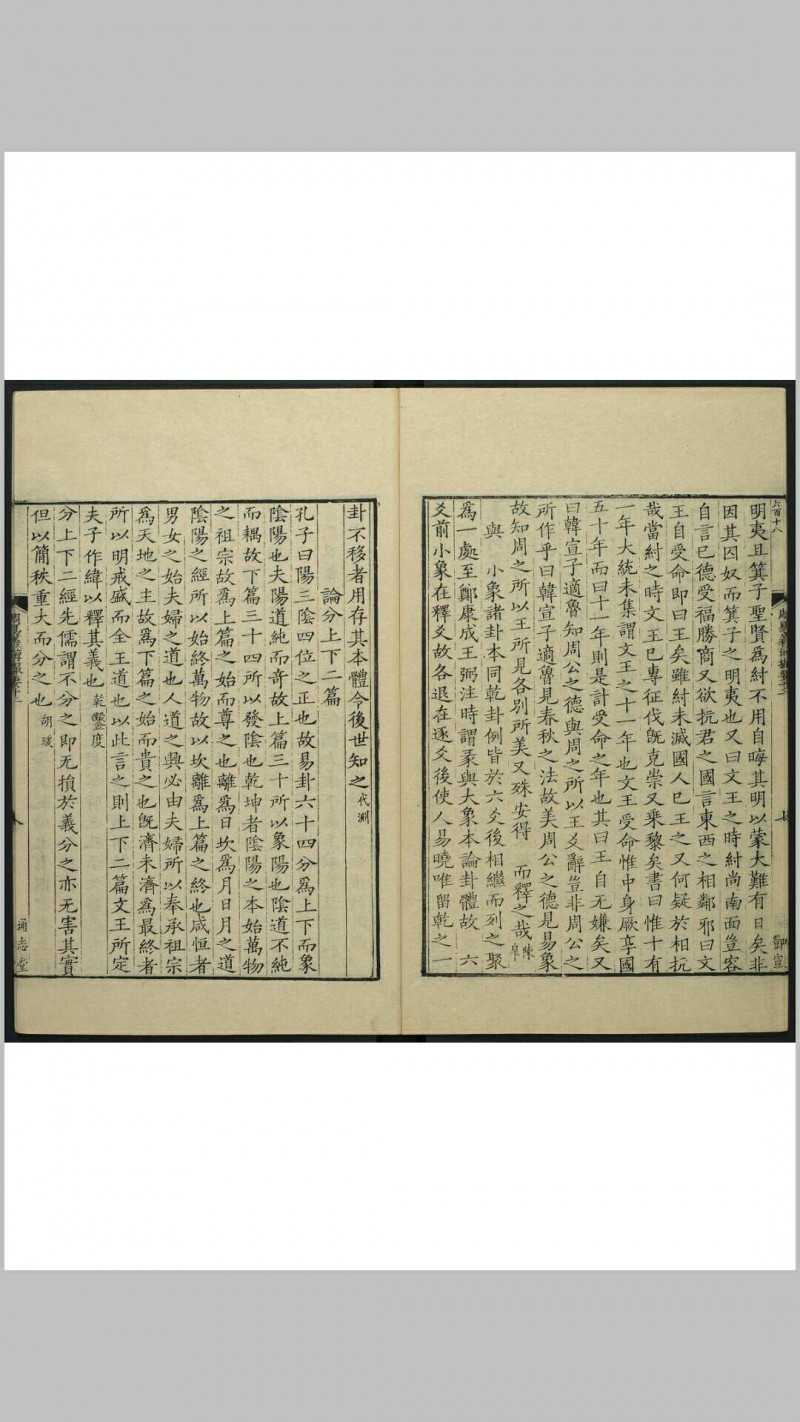 六百十八
明夷且箕子聖賢爲紂不用自晦其明以蒙大難有日矣非
因其囚奴而箕子之明夷也又曰文王之時紂尚南面豈容
自言已德受福勝商又欲抗君之國言東西之相鄰邪曰文
王自受命即曰王矣雖紂未滅國人已王之又何疑於相抗
哉當紂之時文王已專征伐旣克崇又乘黎矣書曰惟十有
一年大統未集謂文王之十一年也文王受命惟中身厥享國
五十年而曰十一年則是計受命之年也其曰王自无嫌矣又
曰韓宣子適魯知周公之德與周之所以王爻辭豈非周公之
所作乎曰韓宣子適魯見春秋之法故美周公之德見易象
故知周之所以王所見各別所美又殊安得 而釋之哉 陳皐
與 小象諸卦本同乾卦例皆於六爻後相繼而列之聚
爲一處至鄭康成王弼注時謂彖與大象本論卦體故 六
爻前小象在釋爻故各退在逐爻後使人易曉唯留乾之一
鄧宣
卦不移者用存其本體令後世知之 代淵
論分上下二篇
孔子曰陽三陰四位之正也故易卦六十四分爲上下而象
陰陽也夫陽道純而奇故上篇三十所以象陽也陰道不純
而耦故下篇三十四所以發陰也乾坤者陰陽之本始萬物
之祖宗故爲上篇之始而尊之也離爲日坎爲月日月之道
陰陽之經所以始終萬物故以坎離爲上篇之終也咸恒者
男女之始夫婦之道也人道之興必由夫婦所以奉承祖宗
爲天地之主故爲下篇之始而貴之也旣濟未濟爲最終者
所以明戒盛而全王道也以此言之則上下二篇文王所定
夫子作緯以釋其義也 乾鑿度
分上下二經先儒謂不分之即无損於義分之亦无害其實
但以簡秩重大而分之也 胡瑗
八
通志堂